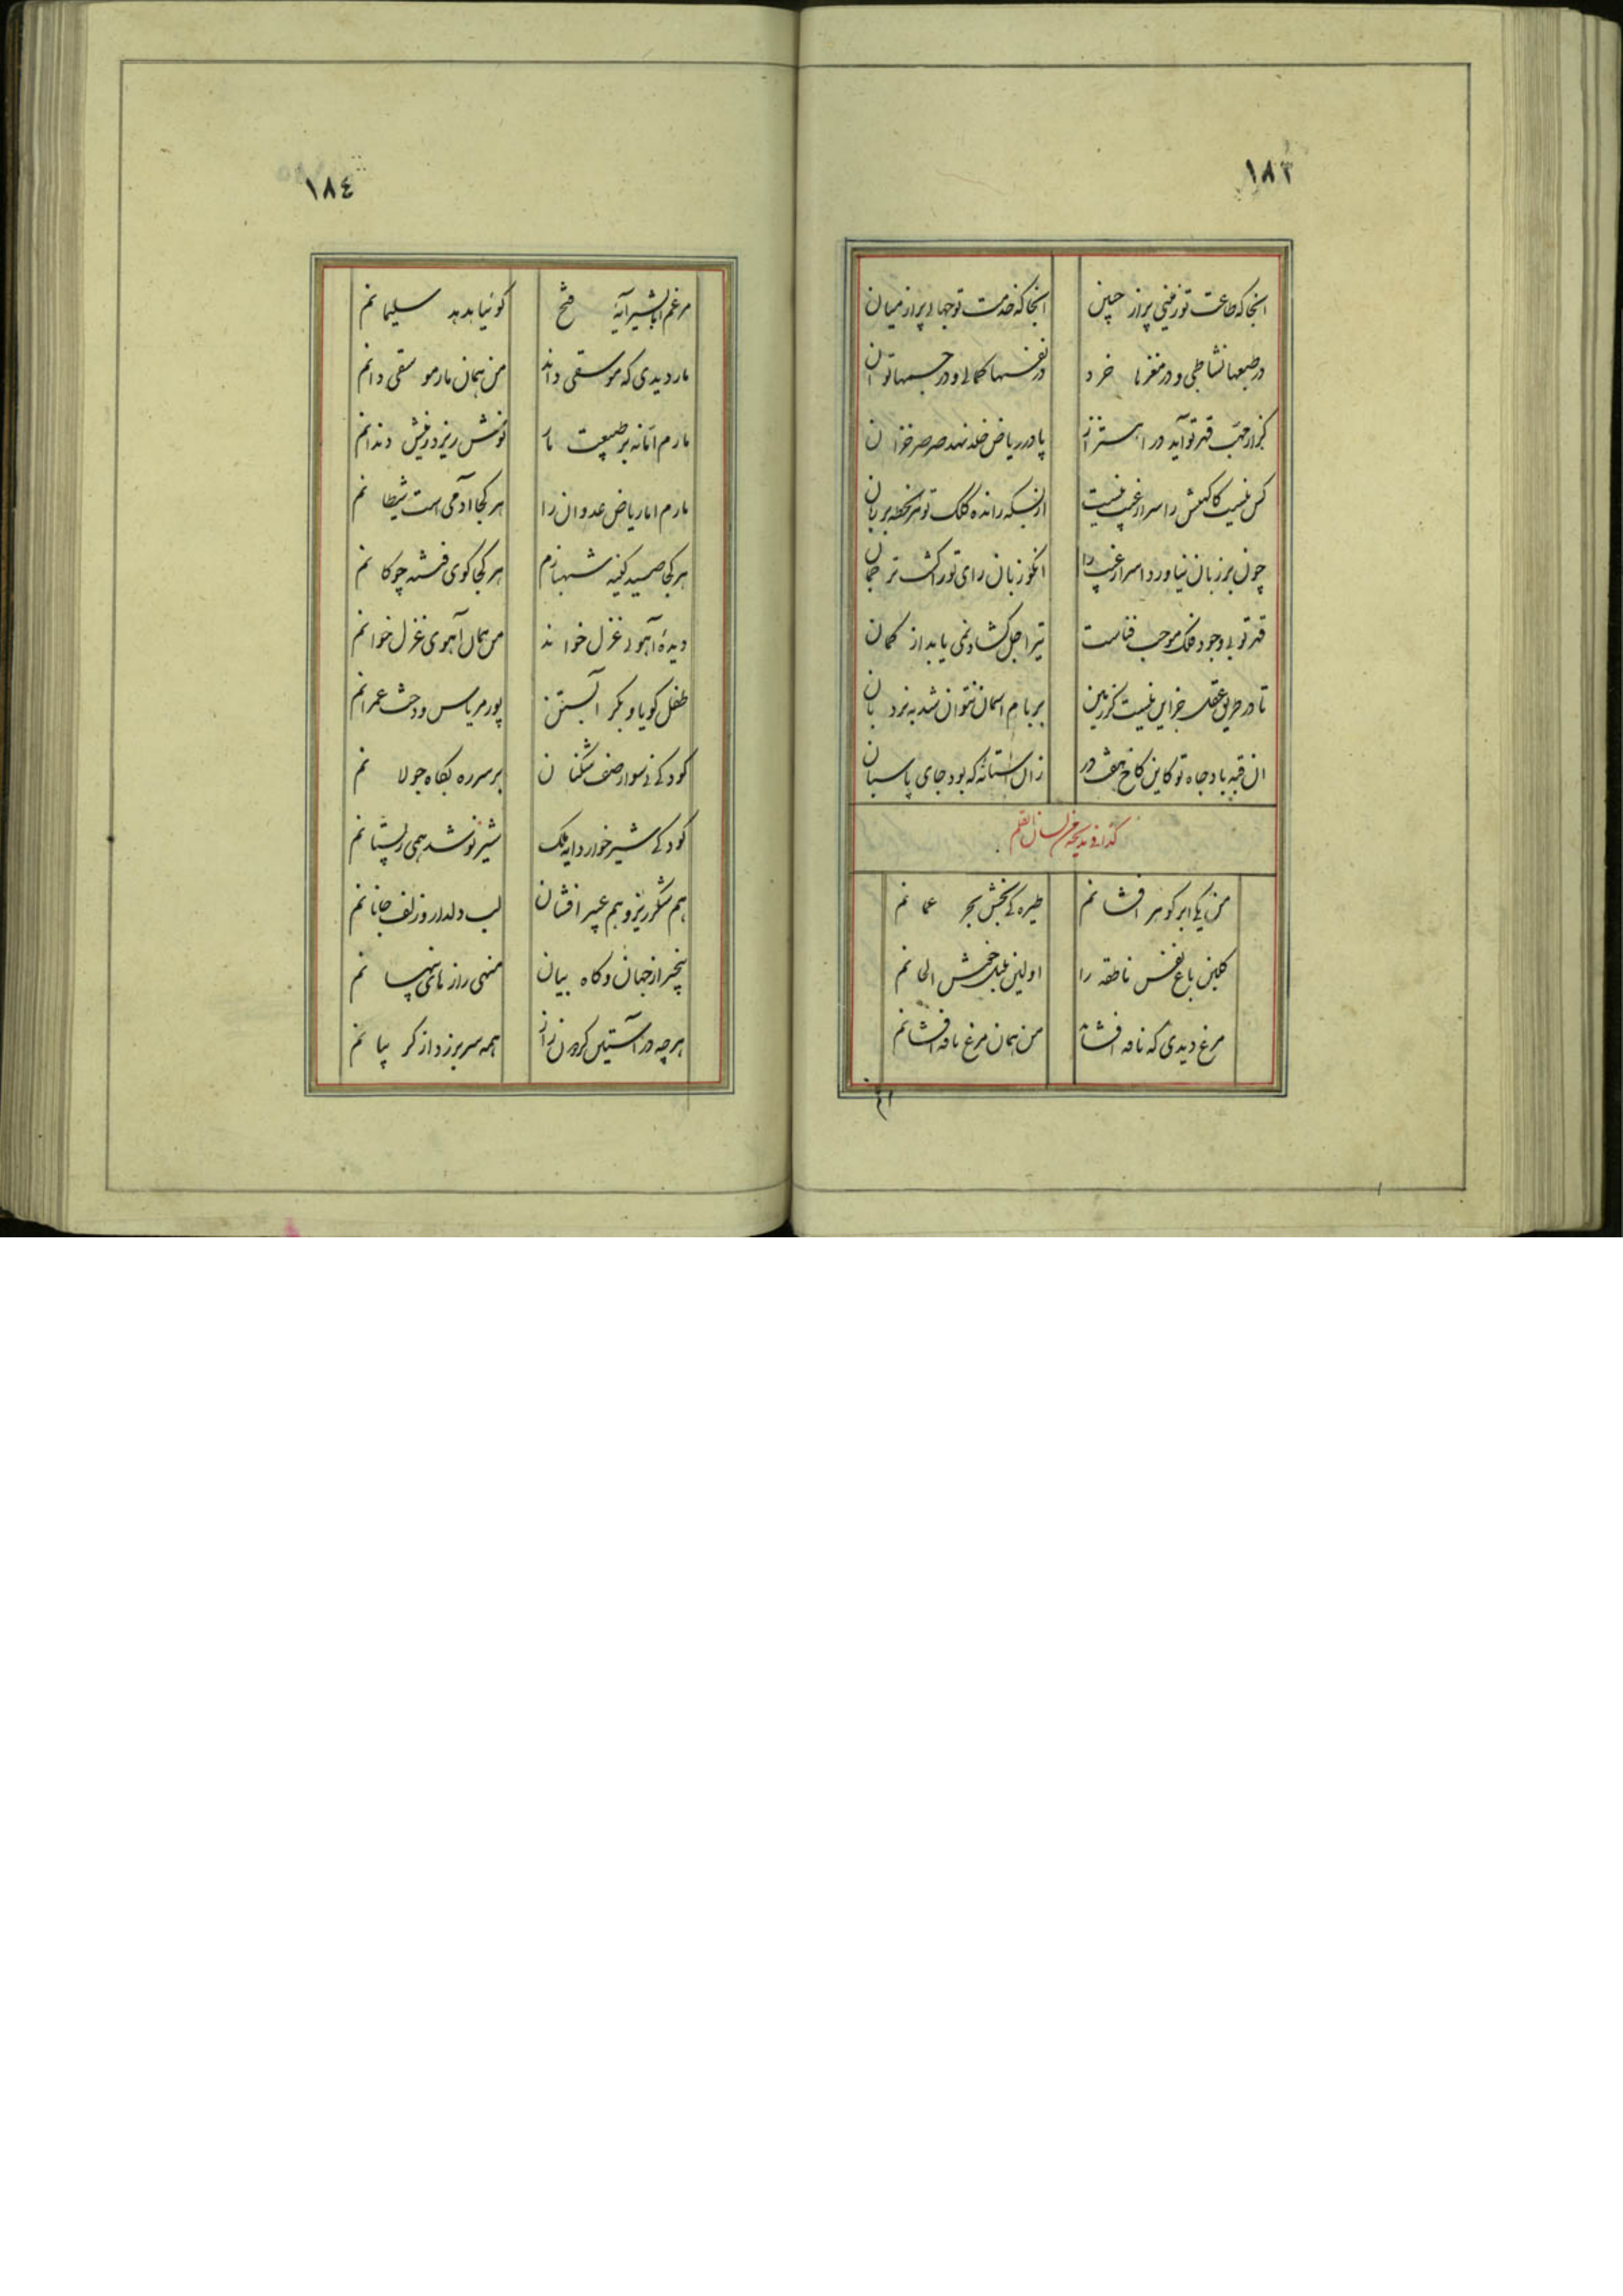 ١٨٣
انجا که طاعت تو زفینی پر از چین انجا که خدمت تو جهاد پر از میان
در طبعها نشاطی و در مغزها خرد در نفسها کمالی و در جسمها توان
گر از مهب قهر تو آید در اهتزاز پا در ریاض خلد نهد صرصر خزان
کس نیست کاگهیش ز اسرار غیب نیست از بسکه رانده کلک تو هر لحظه بر زبان
چون بر زبان نیاورد اسرار غیب را انکو زبان رای تو را گشت ترجمان
قهر تو بی وجود فلک موجب فناست تیر اجل گشاد نمی یابد از کمان
تا در طریق عقل جز این نیست کز زمین بر بام اسمان نتوان شد به نردبان
ان قبه باد جاه تو کاین کاخ هفت در زان استانه که بود جای پاسبان
لسان القلم
من یکی ابر گوهر افشانم طیره کی بخش بحر عمانم
گلبن باغ نفس ناطقه را اولین بلبل خوش الحانم
مرغ دیدی که نافه افشاند من همان مرغ نافه افشانم
١٨٤
مرغم اما بشیر آیهٔ فتح گو نیا هدهد سلیمانم
مار دیدی که موسقی داند من همان مار موسقی دانم
مارم اما نه بر طبیعت مار نوش ریزد ز نیش دندانم
مارم اما ریاض عدوان را هر کجا آدمی است شیطانم
هر کجا صید کینه شهبازم هر کجا گوی فتنه چوگانم
دیدهٔ آهوی غزل خواند من همان آهوی غزل خوانم
طفل گویا و بکر آبستن پور مریم و دخت عمرانم
کودکی نی سوار صف شکنان بر سر ره بگاه جولانم
کودکی شیر خوار دایه ملک شیر نوشد همی ز پستانم
هم شکر ریز و هم عبیر افشان لب دلدار و زلف جانانم
بیخبر از جهان و گاه بیان منهی رازهای پنهانم
هر چه در آستین گردون راز همه سر بر زد از گریبانم